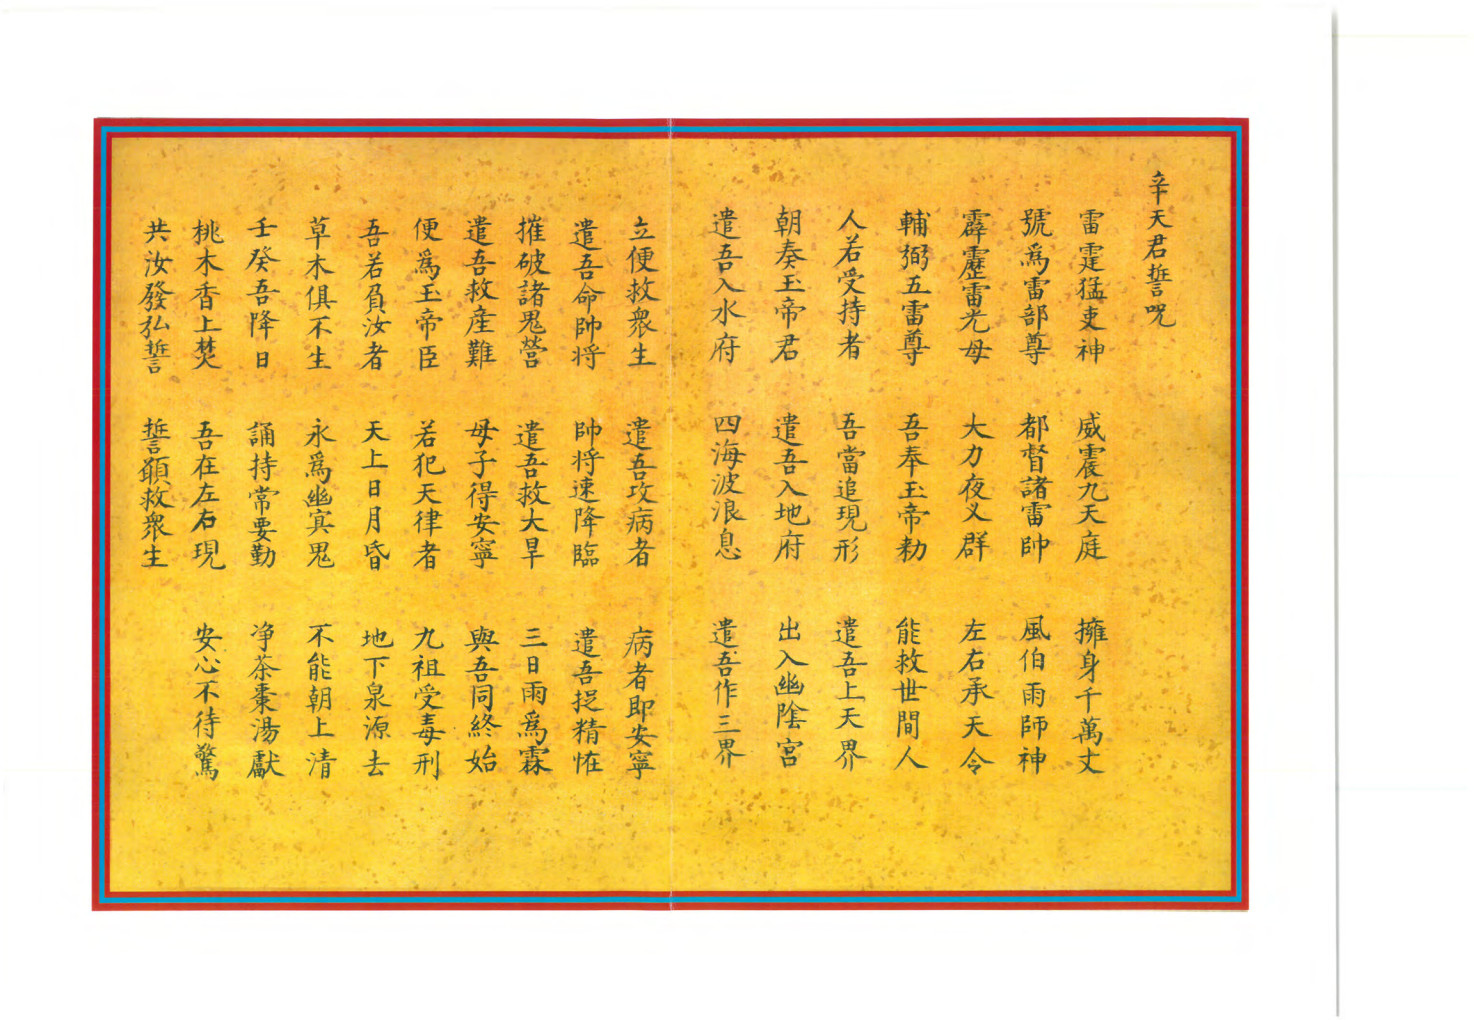 辛天君誓咒
雷霆猛吏神 威震九天庭 擁身千萬丈
號為雷部尊 都督諸雷帥 風伯雨師神
霹靂雷光母 大力夜义群 左右承天令
輔弼五雷尊 吾奉玉帝勑 能救世間人
人若受持者 吾當追現形 遣吾上天界
朝奏玉帝君 遣吾入地府 出入幽陰宮
遣吾入水府 四海波浪息 遣吾作三界
立便救衆生 遣吾攻病者 病者即安寧
遣吾命帥将 帥将速降臨 遣吾捉精恠
摧破諸鬼營 遣吾救大旱 三日雨為霖
遣吾救産難 母子得安寧 與吾同終始
便為玉帝臣 若犯天律者 九祖受毒刑
吾若負汝者 天上日月昏 地下泉源去
草木俱不生 永為幽冥鬼 不能朝上清
壬癸吾降日 誦持常要勤 净茶棗湯獻
桃木香上焚 吾在左右現 安心不待驚
共汝發弘誓 誓願救衆生